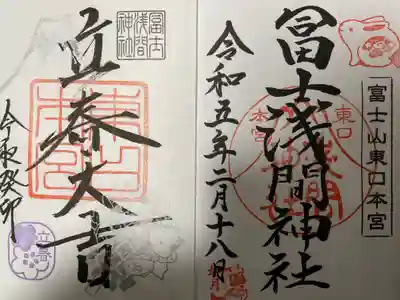 富士山東口本宮
冨士浅間神社
東口
本宮
令和五年二月十八日
冨士
浅間
神社
立春大吉
令和癸卯
立春